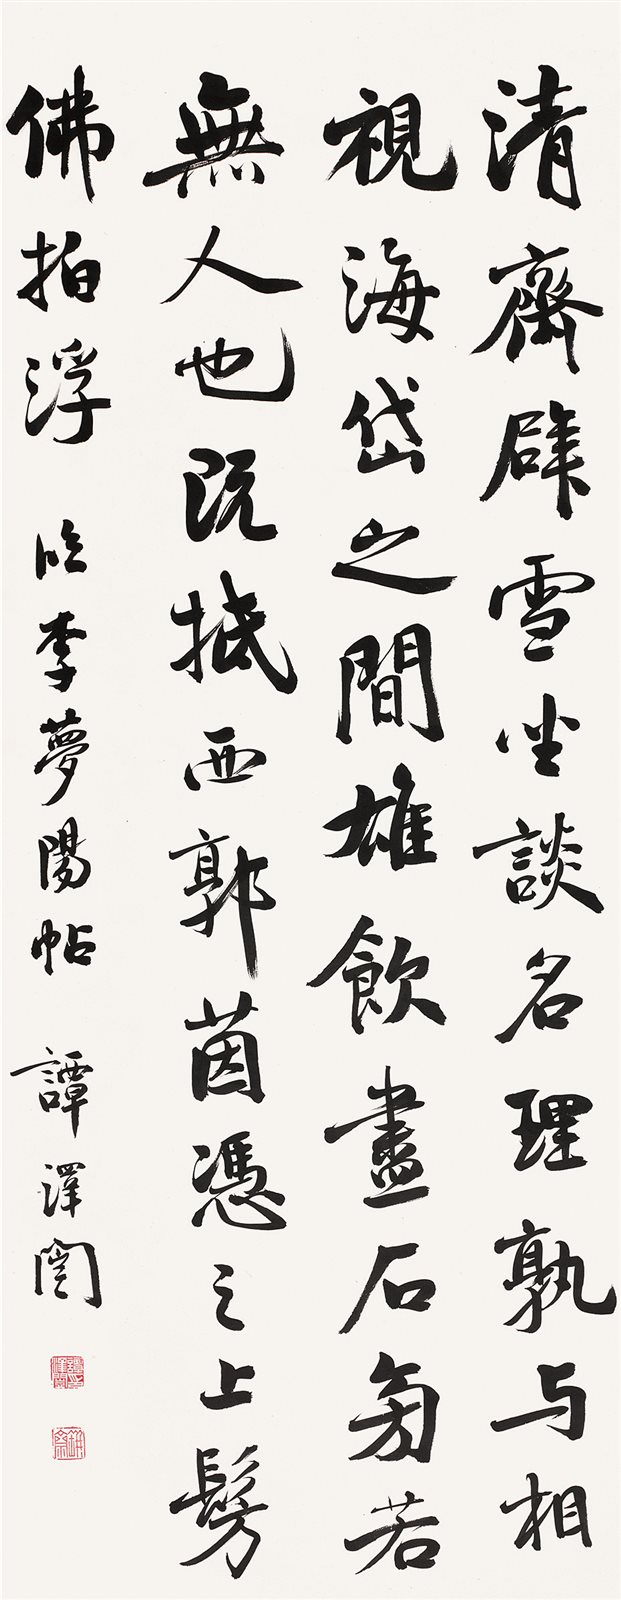 清齋辟雪坐談名理孰与相
視海岱之間雄飲盡石旁若
無人也既抵西郭茵憑之上髣
佛拍浮 臨李夢陽帖 譚澤闓